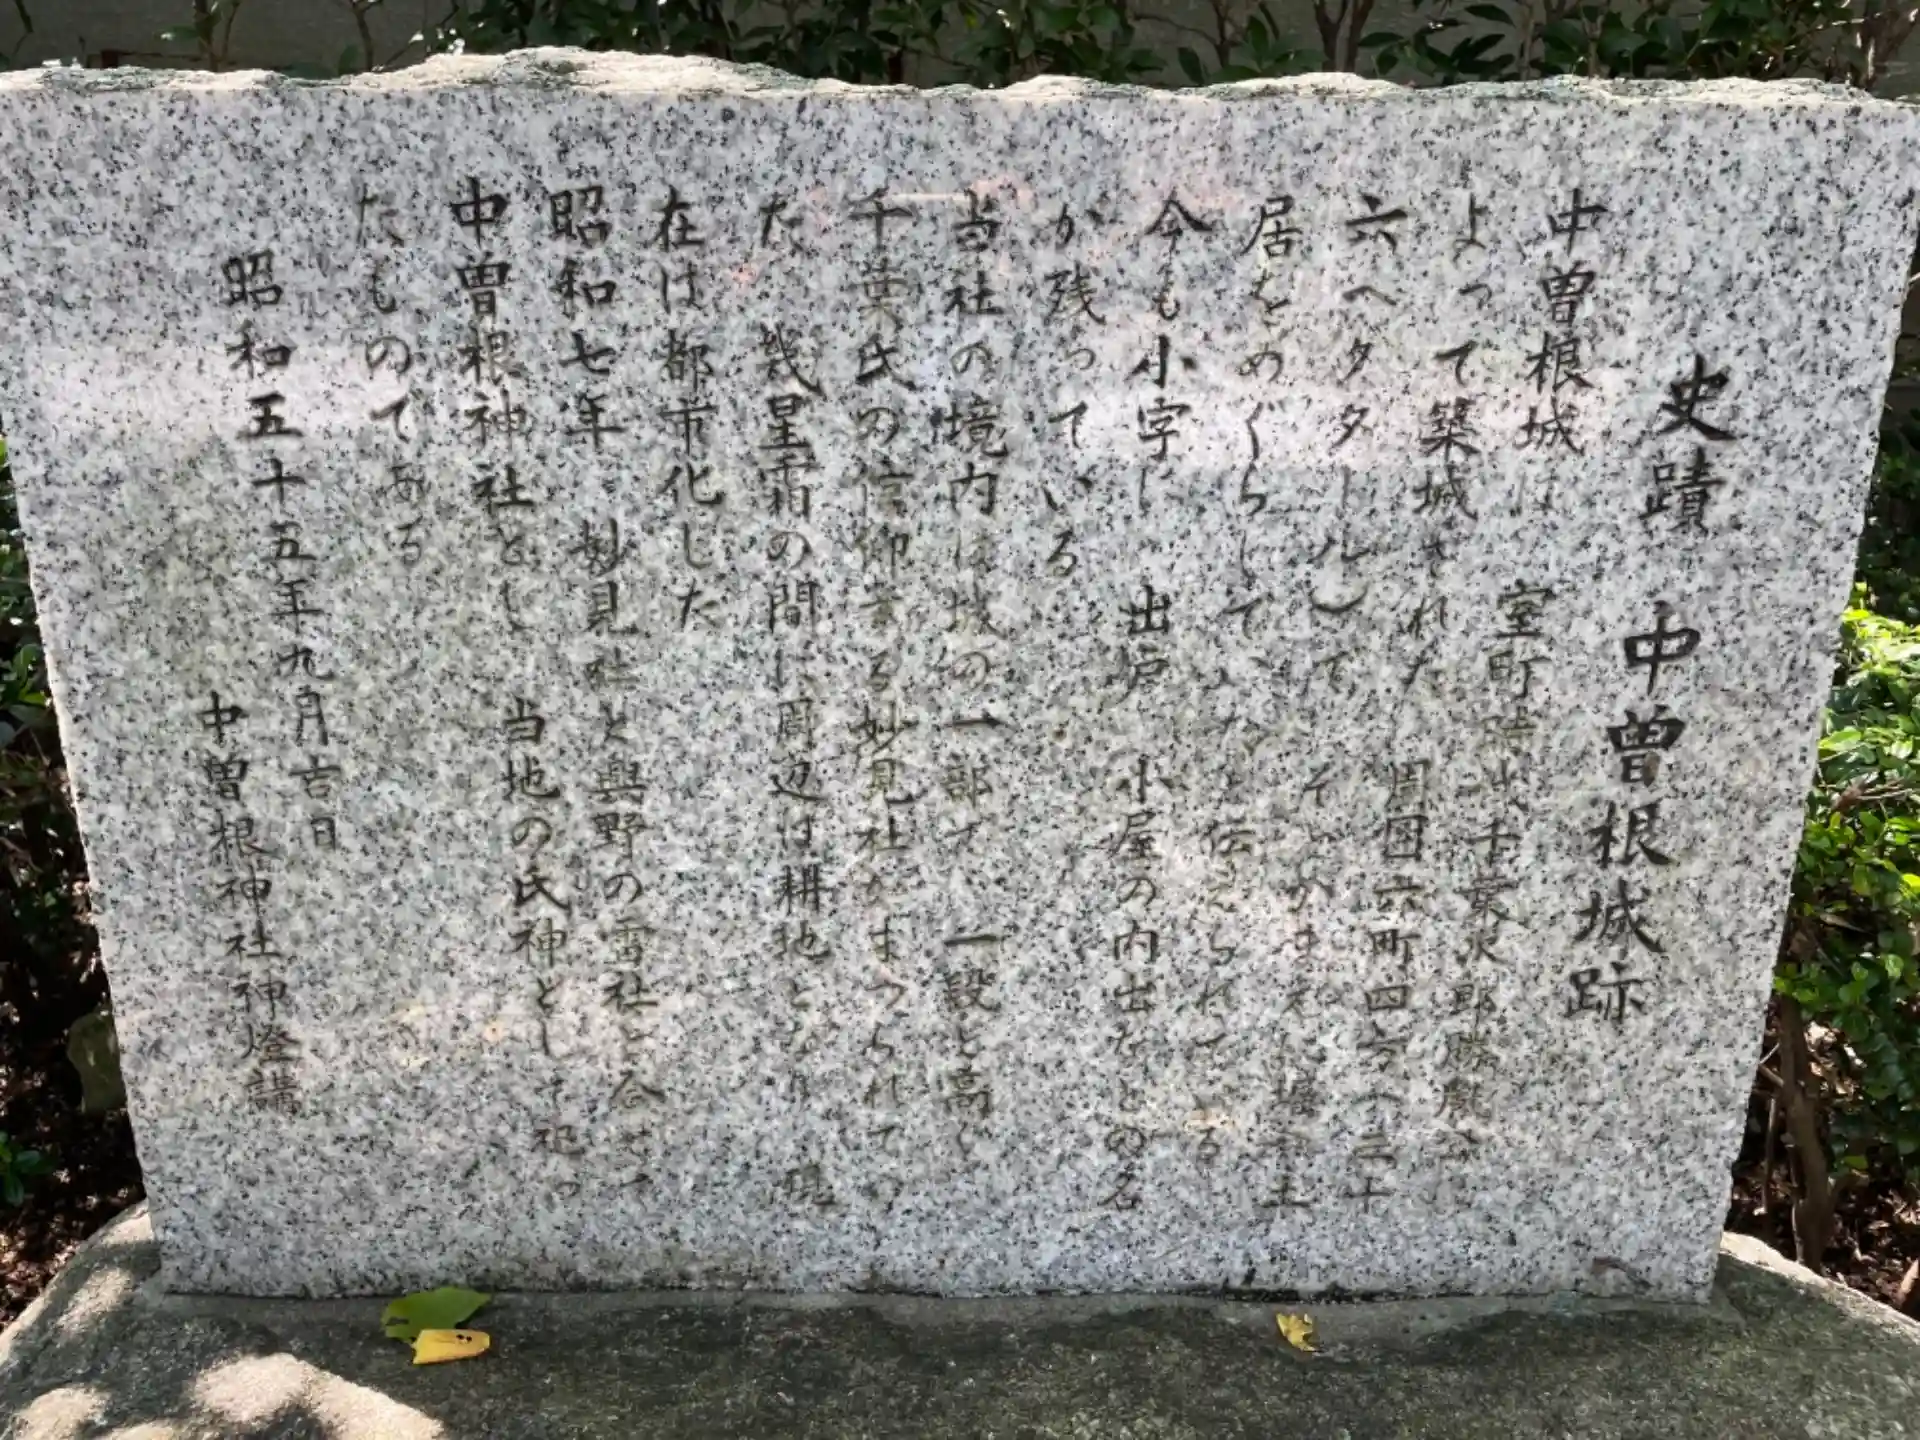 史蹟　中曽根城跡
中曽根城は　室町時代千葉次郎勝胤公に
よって築城された　周囲六町四方（三十
六ヘクタール）で　そとがまえに堀や土
居をめぐらしていたと伝えられている
今も小字に　出戸　小屋の内出などの名
が残っている
当社の境内は城の一部で　一段と高く
千葉氏の信仰する妙見社がまつられてい
た　幾星霜の間に周辺は耕地となり　現
在は都市化した
昭和七年　妙見社と與野の雷社を合せて
中曽根神社とし　当地の氏神として祀っ
たものである
昭和五十五年九月吉日
中曽根神社神燈講